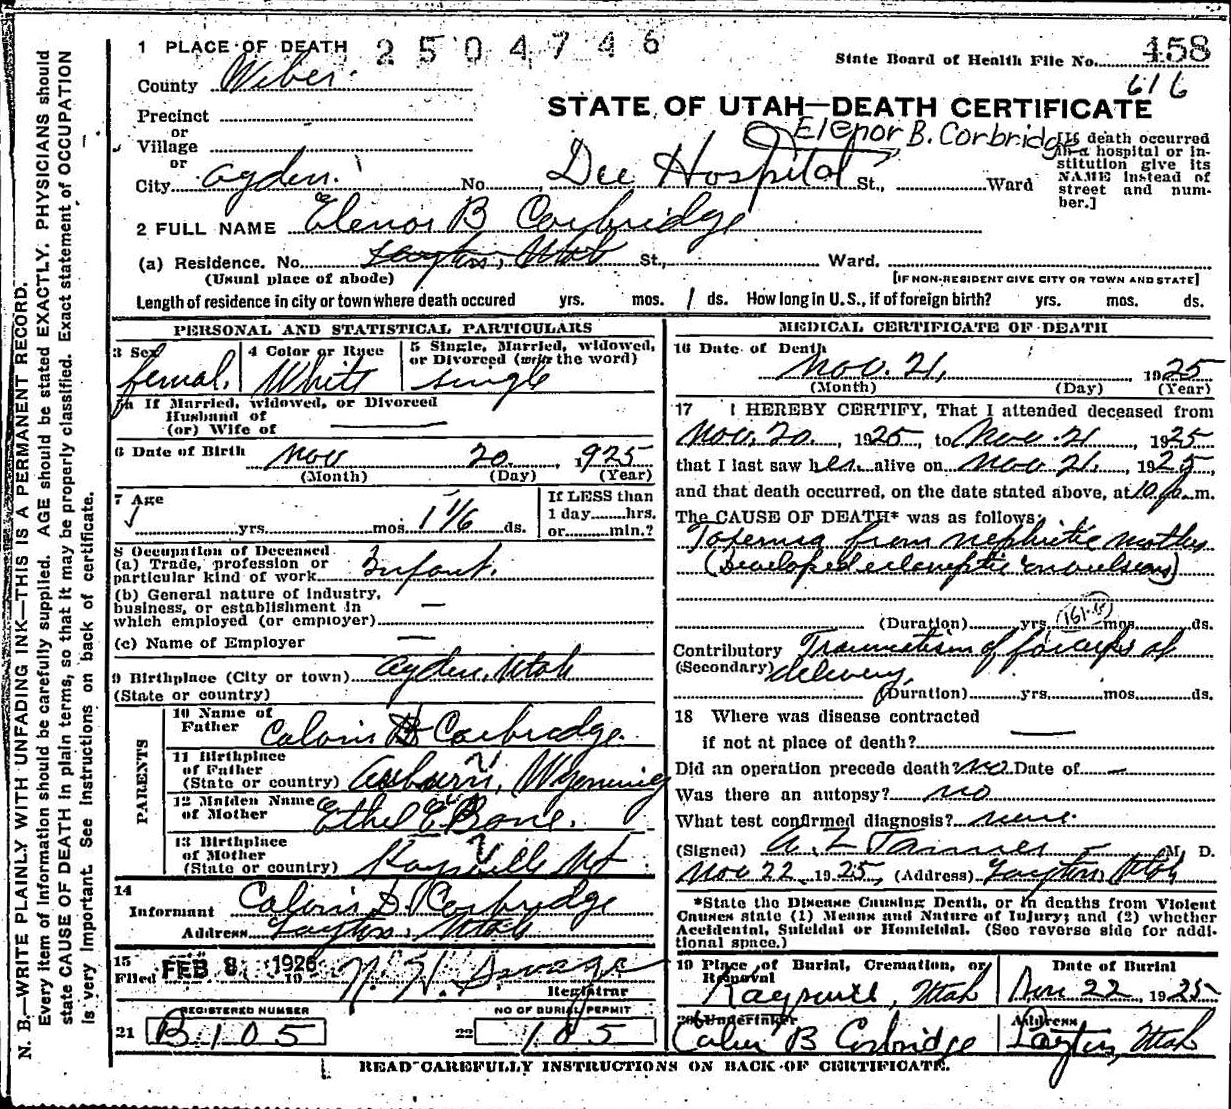 1 PLACE OF DEATH 2504746
State Board of Health File No. 458
County Weber. 616
STATE OF UTAH—DEATH CERTIFICATE
Precinct
or
Village
or
Elenor B. Corbridge
[If death occurred in a hospital or institution give its NAME instead of street and number.]
City Ogden. No. Dee Hospital St., Ward
2 FULL NAME Elenor B Corbridge
(a) Residence. No. Layton, Utah St., Ward.
(Usual place of abode) [IF NON-RESIDENT GIVE CITY OR TOWN AND STATE]
Length of residence in city or town where death occured yrs. mos. 1 ds. How long in U. S., if of foreign birth? yrs. mos. ds.
PERSONAL AND STATISTICAL PARTICULARS
3 Sex 4 Color or Race 5 Single, Married, widowed, or Divorced (write the word)
femal. White single
5a If Married, widowed, or Divorced
Husband of
(or) Wife of
6 Date of Birth Nov 20 1925
(Month) (Day) (Year)
7 Age
yrs. mos. 1 ds.
If LESS than
1 day hrs.
or min.?
8 Occupation of Deceased
(a) Trade, profession or
particular kind of work Infant.
(b) General nature of Industry,
business, or establishment in
which employed (or employer) —
(c) Name of Employer —
9 Birthplace (City or town) Ogden, Utah
(State or country)
PARENTS
10 Name of
Father Corbridge.
11 Birthplace
of Father
(State or country) Auburn, Wyoming
12 Maiden Name
of Mother Ethel E Bone.
13 Birthplace
of Mother
(State or country) Kaysville Ut
14
Informant Corbridge
Address Layton, Utah
15
Filed FEB 8 1926 N. H. Savage
Registrar
REGISTERED NUMBER NO OF BURIAL PERMIT
21 B105 22 105
MEDICAL CERTIFICATE OF DEATH
16 Date of Death
Nov. 21, 1925
(Month) (Day) (Year)
17 I HEREBY CERTIFY, That I attended deceased from
Nov. 20, 1925, to Nov. 21, 1925
that I last saw her alive on Nov 21, 1925,
and that death occurred, on the date stated above, at 10 p. m.
The CAUSE OF DEATH* was as follows:
Toxemia from nephritic mother
(Developed eclamptic convulsions)
(Duration) yrs. mos. ds.
Contributory Traumatism of forceps at
(Secondary) delivery.
(Duration) yrs. mos. ds.
18 Where was disease contracted
if not at place of death? —
Did an operation precede death? no Date of —
Was there an autopsy? no
What test confirmed diagnosis? none.
(Signed) A. Z. Tanner M. D.
Nov 22, 1925, (Address) Layton, Utah
*State the Disease Causing Death, or in deaths from Violent
Causes state (1) Means and Nature of Injury; and (2) whether
Accidental, Suicidal or Homicidal. (See reverse side for addi-
tional space.)
19 Place of Burial, Cremation, or Date of Burial
Removal
Kaysville, Utah Nov 22, 1925
20 Undertaker Address
B Corbridge Layton, Utah
READ CAREFULLY INSTRUCTIONS ON BACK OF CERTIFICATE.
N. B.—WRITE PLAINLY WITH UNFADING INK—THIS IS A PERMANENT RECORD.
Every item of information should be carefully supplied. AGE should be stated EXACTLY. PHYSICIANS should
state CAUSE OF DEATH in plain terms, so that it may be properly classified. Exact statement of OCCUPATION
is very important. See instructions on back of certificate.